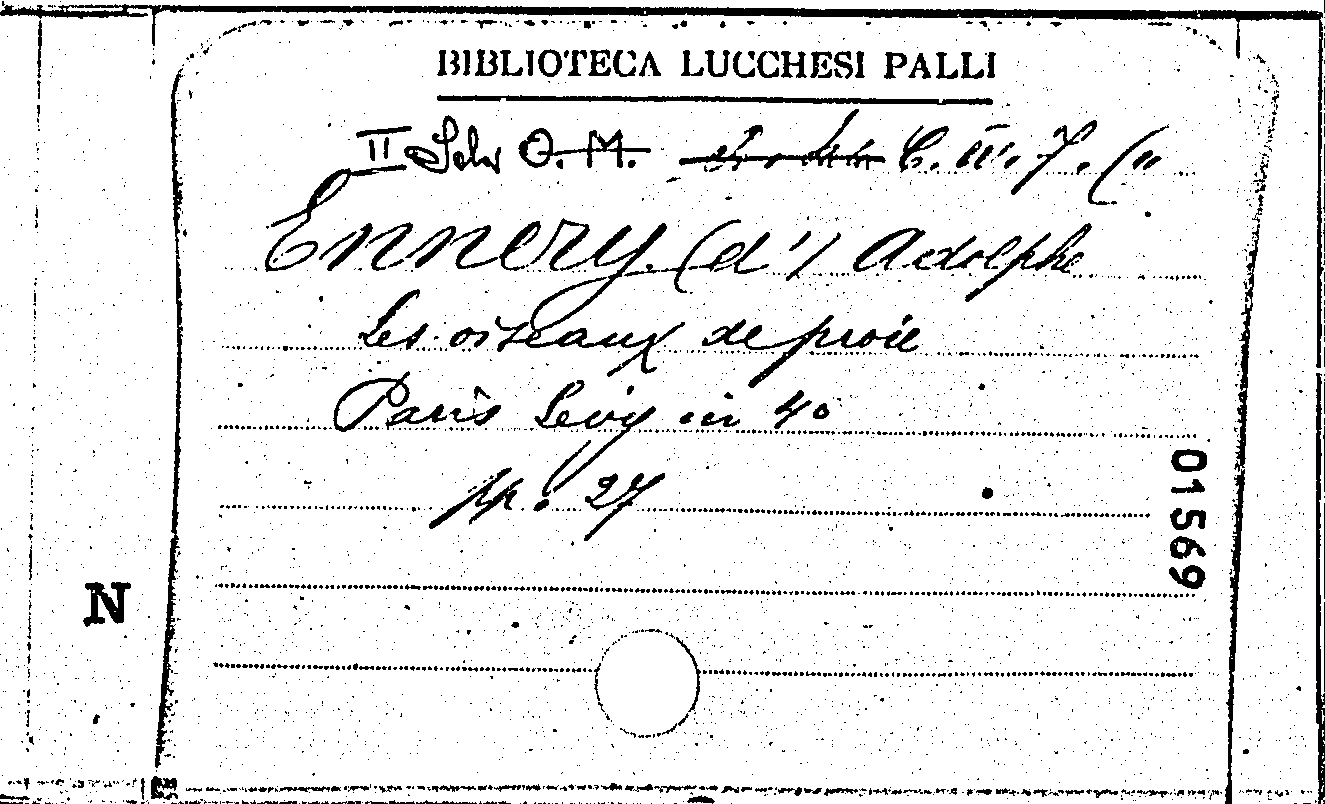 BIBLIOTECA LUCCHESI PALLI
II Sala O. M. C. IV. 7. (11
Ennery (d') Adolphe
Les oiseaux de proie
Paris Levy in 4o
pp. 27
01569
N